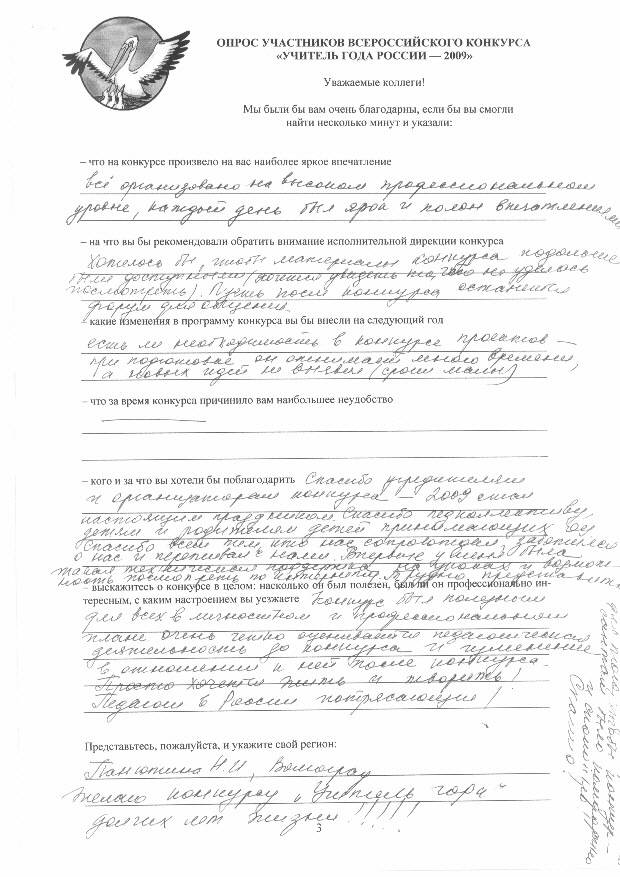 ОПРОС УЧАСТНИКОВ ВСЕРОССИЙСКОГО КОНКУРСА
«УЧИТЕЛЬ ГОДА РОССИИ — 2009»
Уважаемые коллеги!
Мы были бы вам очень благодарны, если бы вы смогли
найти несколько минут и указали:
– что на конкурсе произвело на вас наиболее яркое впечатление
всё организовано на высоком профессиональном
уровне, каждый день был ярок и полон впечатлений
– на что вы бы рекомендовали обратить внимание исполнительной дирекции конкурса
Хотелось бы, чтобы материалы конкурса подольше
были доступными (хочется увидеть на чего не удалось
посмотреть). Пусть после конкурса останется
форум для общения
– какие изменения в программу конкурса вы бы внесли на следующий год
есть ли необходимость в конкурсе проектов —
при подготовке он отнимает много времени,
а новых идей не выявил (сроки малы)
– что за время конкурса причинило вам наибольшее неудобство
– кого и за что вы хотели бы поблагодарить Спасибо учредителям
и организаторам конкурса — 2009 стал
настоящим праздником. Спасибо педколлективу
детям и родителям детей принимающих ОУ
Спасибо всем тем, кто нас сопровождал, заботился
о нас и переживал с нами. Впервые у меня была
такая техническая поддержка на уроках и возмож-
ность посмотреть по интернету. Трудно представить
– выскажитесь о конкурсе в целом: насколько он был полезен, был ли он профессионально ин-
тересным, с каким настроением вы уезжаете Конкурс был полезным
для всех в личностном и профессиональном
плане очень четко оцениваете педагогическую
деятельность до конкурса и изменение
в отношении к ней после конкурса.
Просто хочется жить и творить!
Педагоги в России потрясающие!
Представьтесь, пожалуйста, и укажите свой регион:
Н.И., Волгоград
Желаю конкурсу „Учитель года“
долгих лет жизни!!!!!!
3
для того чтобы конкур-
Спасибо!